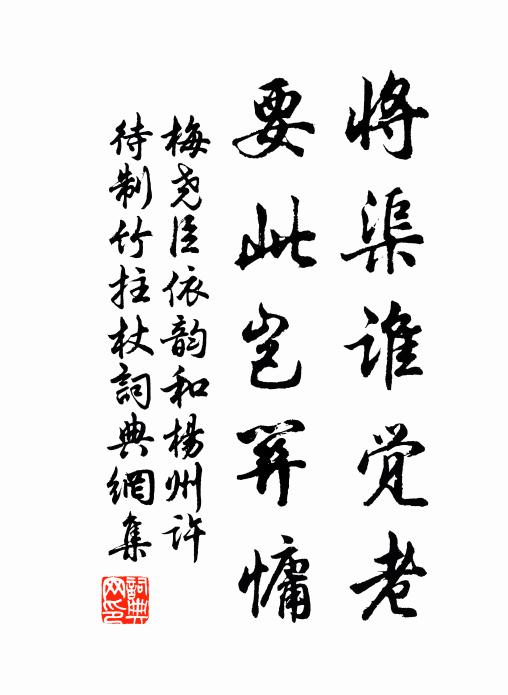 将渠谁觉老
要此岂筭慵
梅尧臣依韵和杨州许
待制竹拄杖詞典網集
詞典网印